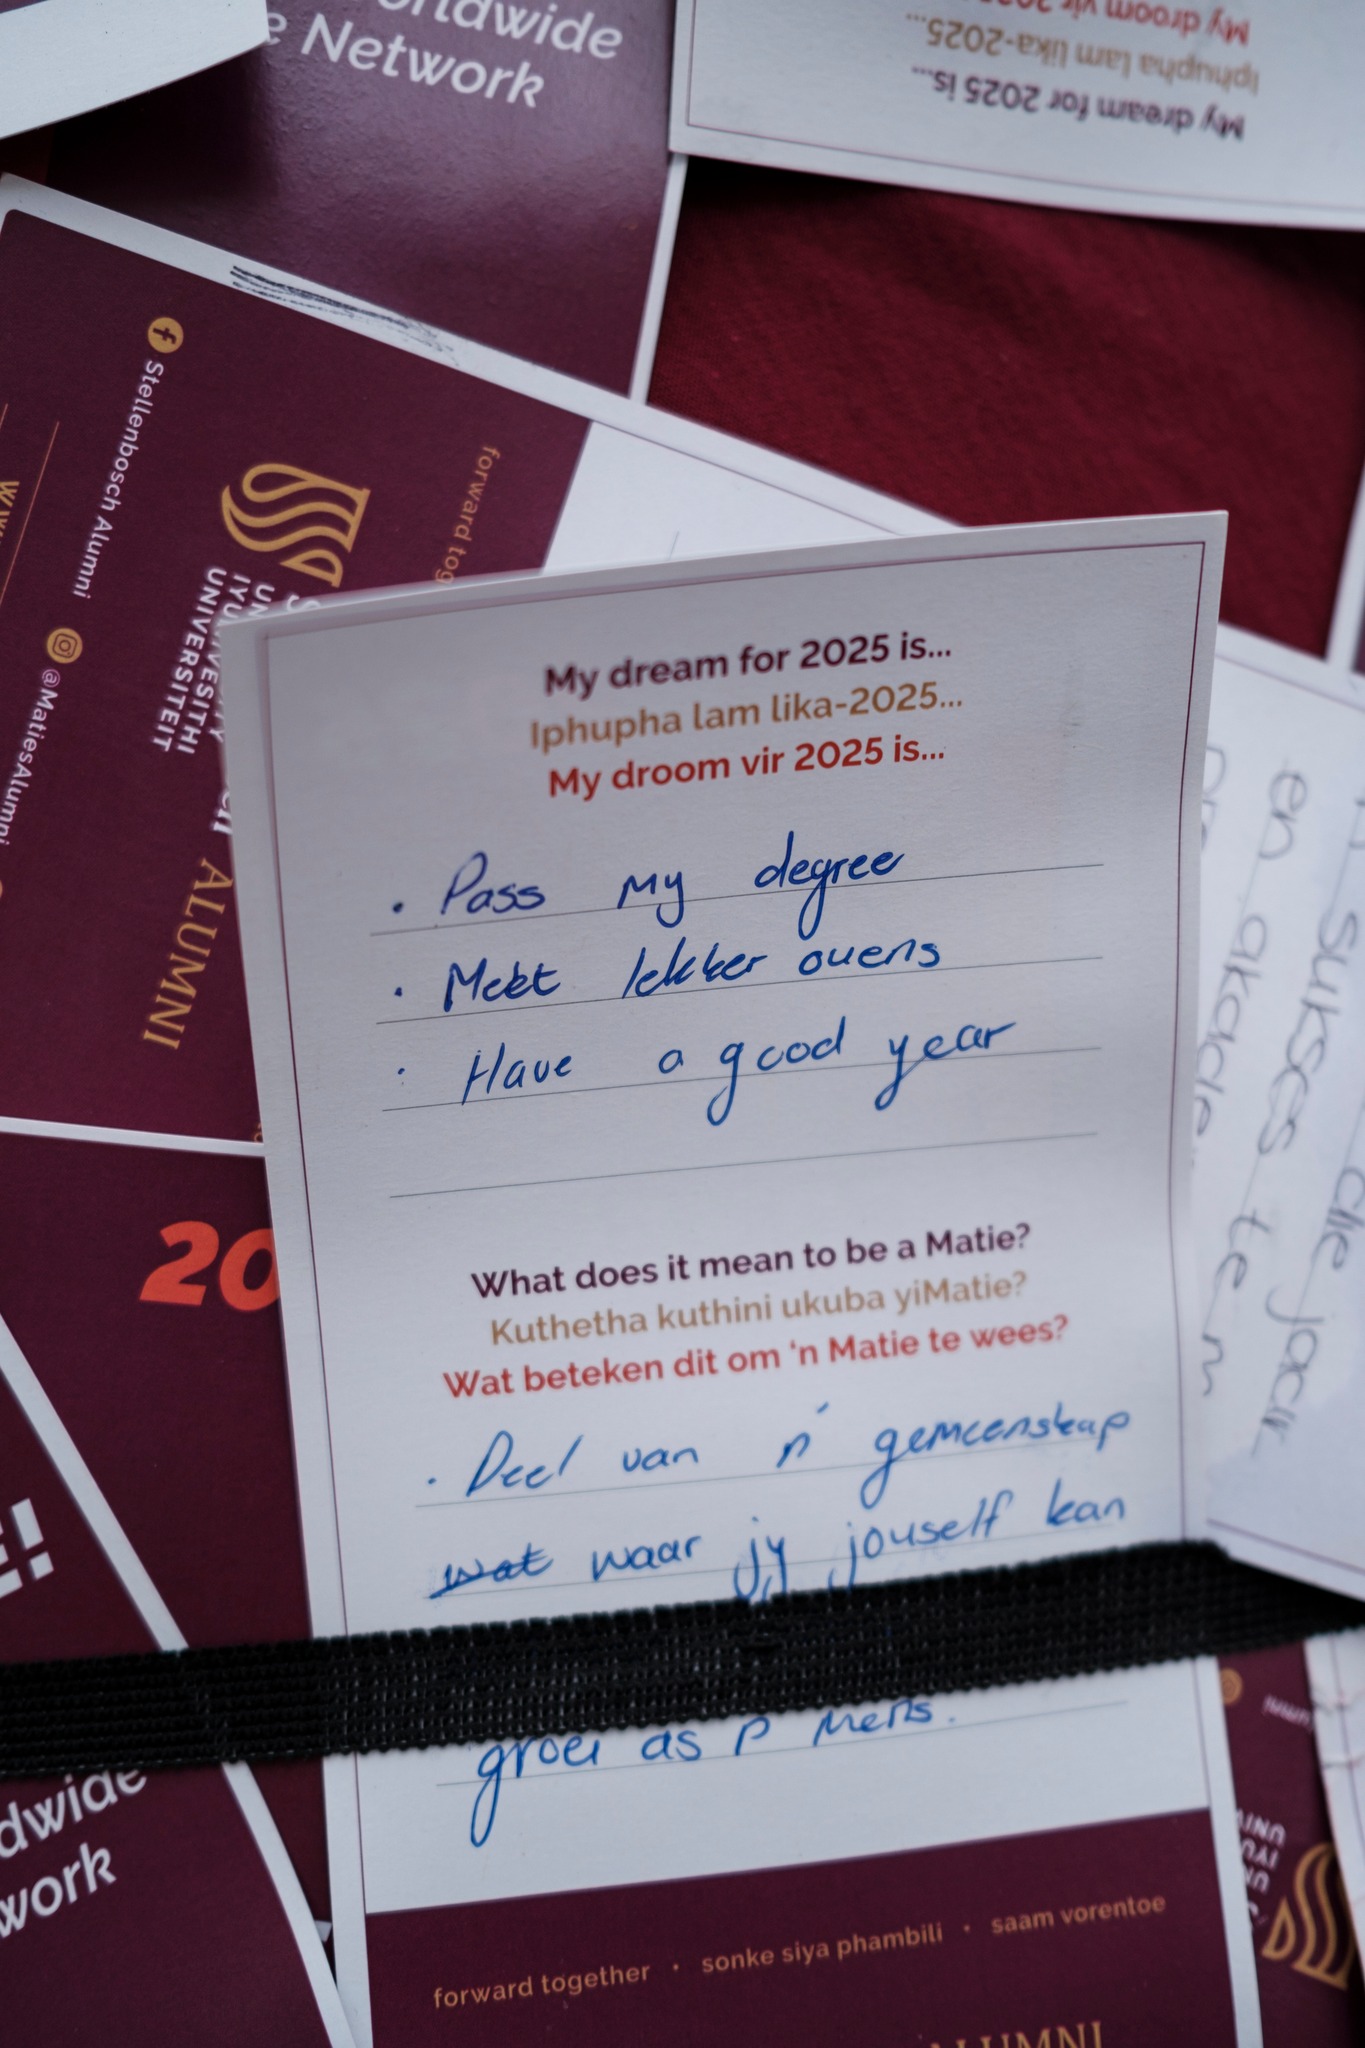 orldwide
e Network
My droom vir 202
Iphupha lam lika-2025...
My dream for 2025 is...
Stellenbosch Alumni
@MatiesAlumni
forward tog
UNIVERSITEIT
ALUMNI
20
My dream for 2025 is...
Iphupha lam lika-2025...
My droom vir 2025 is...
. Pass my degree
. Meet lekker ouens
. Have a good year
What does it mean to be a Matie?
Kuthetha kuthini ukuba yiMatie?
Wat beteken dit om 'n Matie te wees?
. Deel van n' gemeenskap
wat waar jy jouself kan
groei as n mens.
forward together · sonke siya phambili · saam vorentoe
ALUMNI
die jaar
sukses te
en akade
E!
dwide
work